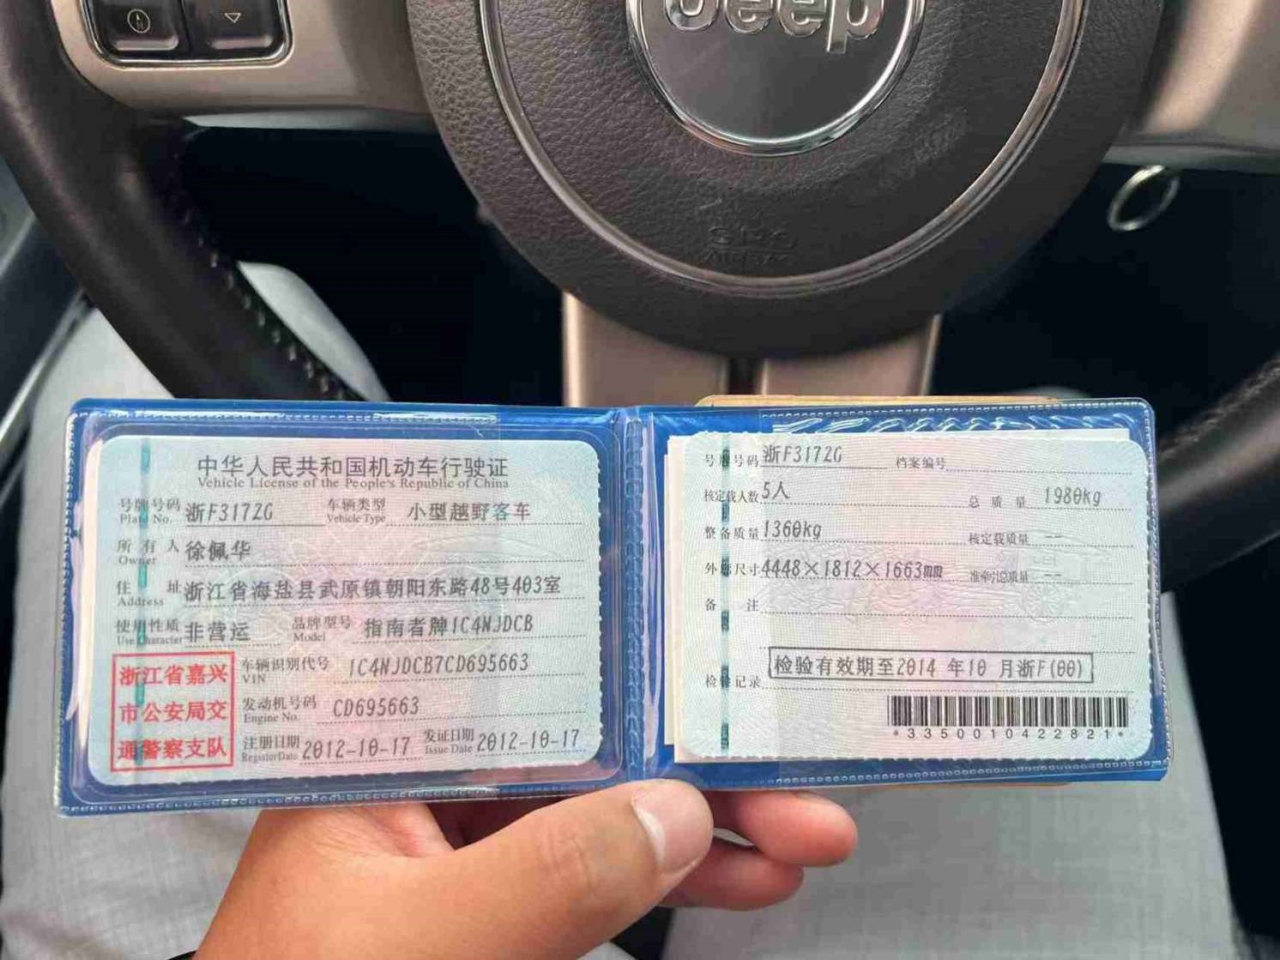 Jeep
SRS
AIRBAG
中华人民共和国机动车行驶证
Vehicle License of the People's Republic of China
号牌号码 浙F3172G 车辆类型 小型越野客车
Plate No. Vehicle Type
所有人 徐佩华
Owner
住址 浙江省海盐县武原镇朝阳东路48号403室
Address
使用性质 非营运 品牌型号 指南者牌1C4NJDCB
Use Character Model
浙江省嘉兴
市公安局交
通警察支队
车辆识别代号 1C4NJDCB7CD695663
VIN
发动机号码 CD695663
Engine No.
注册日期 2012-10-17 发证日期 2012-10-17
Register Date Issue Date
号牌号码 浙F3172G 档案编号
核定载人数 5人 总质量 1980kg
整备质量 1360kg 核定载质量 --
外廓尺寸 4448×1812×1663mm 准牵引总质量 --
备注
检验记录 检验有效期至2014年10月浙F(00)
*3350010422821*